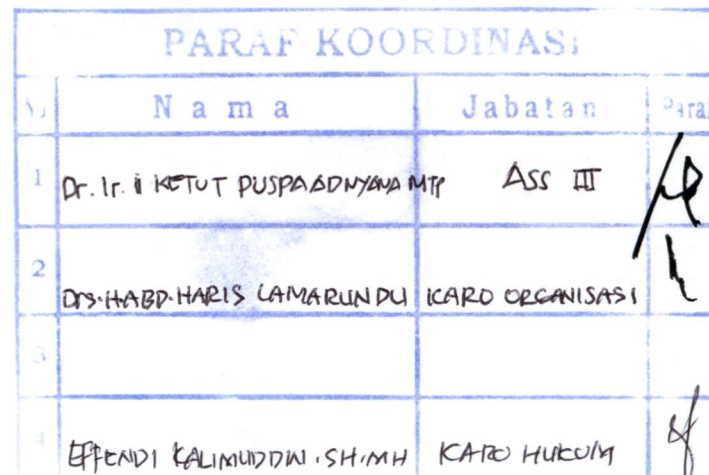 PARAF KOORDINASI
No Nama Jabatan Paraf
1 Dr. Ir. I KETUT PUSPA ADNYANA MTP ASS III
2 Drs. H ABD. HARIS LAMARUNDU KARO ORGANISASI
3
4 EFFENDI KALIMUDDIN . SH . MH KARO HUKUM